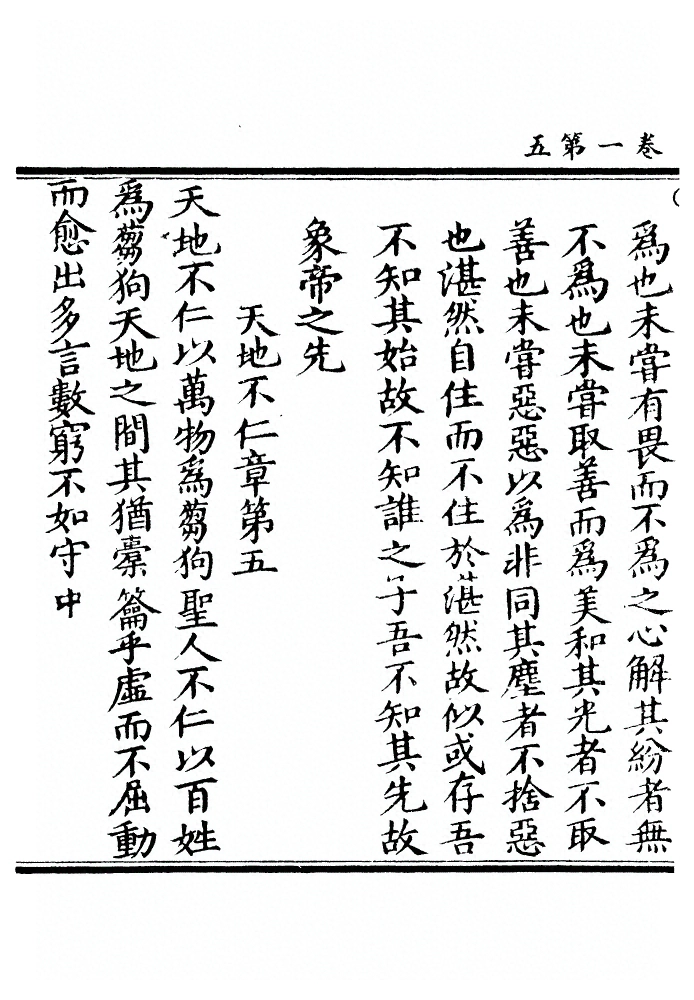 卷一第五
爲也未嘗有畏而不爲之心解其紛者無
不爲也未嘗取善而爲美和其光者不取
善也未嘗惡惡以爲非同其塵者不捨惡
也湛然自住而不住於湛然故似或存吾
不知其始故不知誰之子吾不知其先故
象帝之先
天地不仁章第五
天地不仁以萬物爲蒭狗聖人不仁以百姓
爲蒭狗天地之間其猶橐籥乎虛而不屈動
而愈出多言數窮不如守中